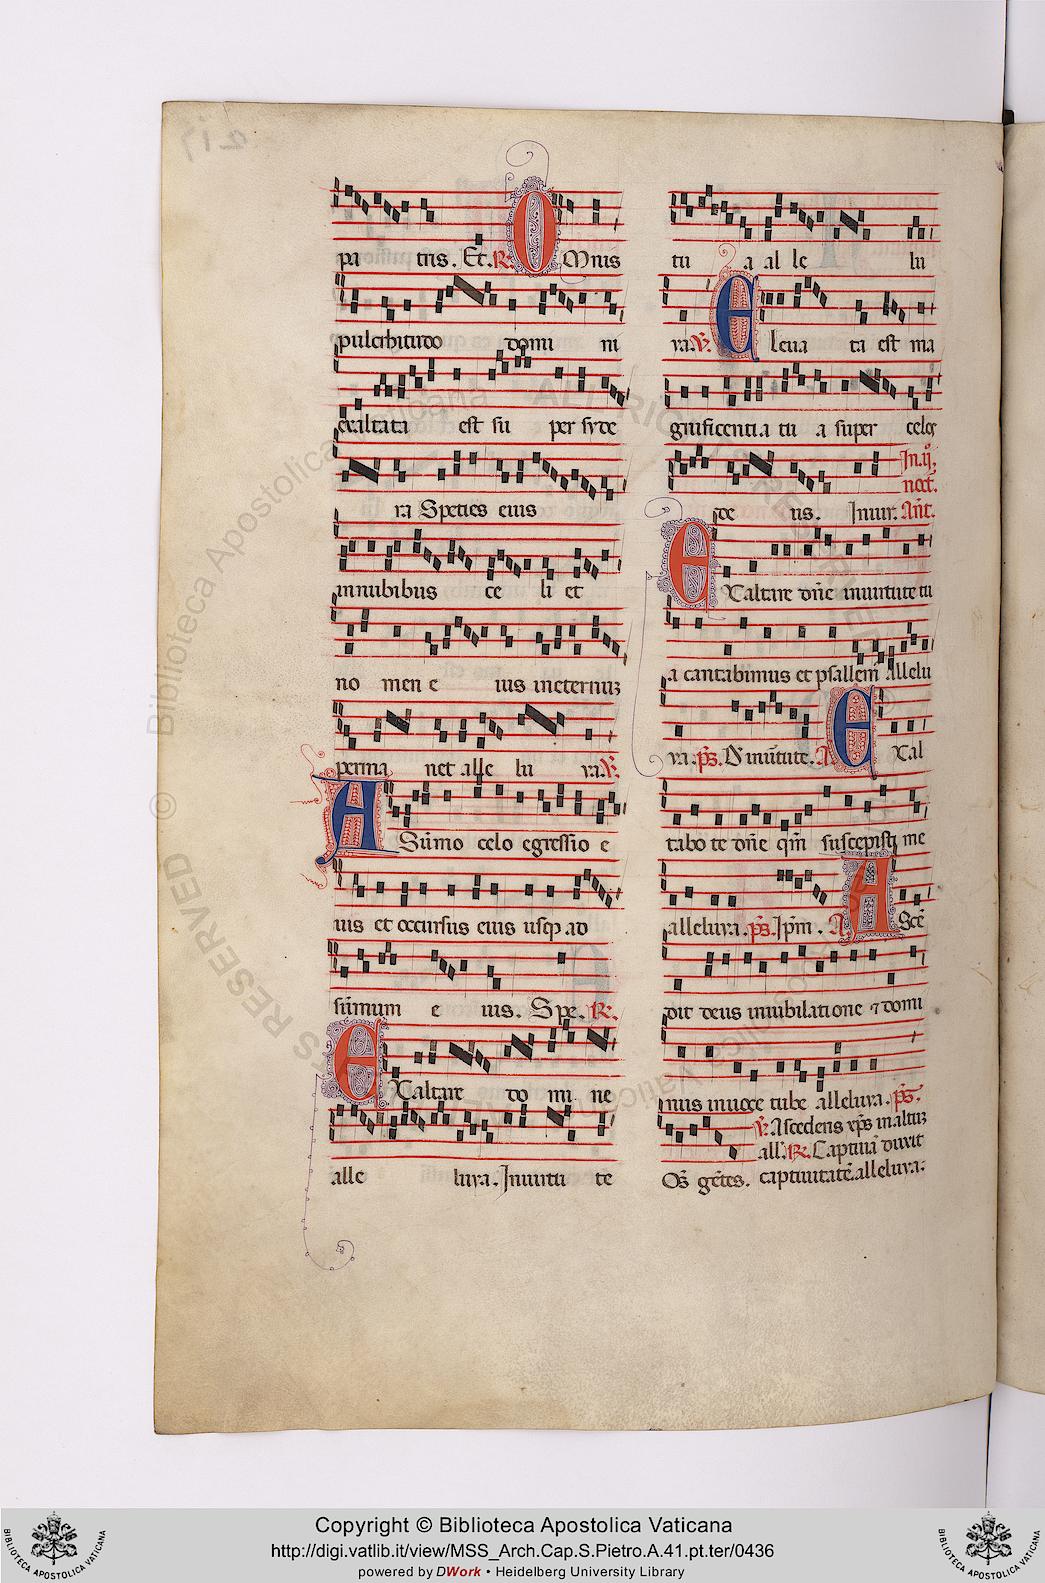 pa tris. Et. R. OMnis
pulchritudo domi ni
exaltata est su per syde
ra Species eius
innubibus ce li et
no men e ius ineternuz
perma net alle lu ya. V.
A Sūmo celo egressio e
ius et occursus eius usqȝ ad
sūmum e ius. Spe. R.
EXaltare do mi ne
alle luya. Inuirtu te
tu a al le lu
ya. V. Eleua ta est ma
gnificentia tu a super celos
de us. Inuir. In .ij. noct. Ant.
EXaltare dn̄e inuirtute tu
a cantabimus et psallem̄ Allelu
ya. ps. D inūtute. A. EXal
tabo te dn̄e qm̄ suscepisti me
alleluya. ps. Ip̄m. A. AScē
dit deus iniubilatione ⁊ domi
nus inuoce tube alleluya. ps.
V. Ascēdens xp̄s inaltuz
all'. R. Captiuā duxit
Oēs gētes. captiuitatē.alleluya.
Copyright © Biblioteca Apostolica Vaticana
http://digi.vatlib.it/view/MSS_Arch.Cap.S.Pietro.A.41.pt.ter/0436
powered by DWork • Heidelberg University Library
BIBLIOTECA APOSTOLICA VATICANA
BIBLIOTECA APOSTOLICA VATICANA
© Biblioteca Apostolica Vaticana ALL RIGHTS RESERVED